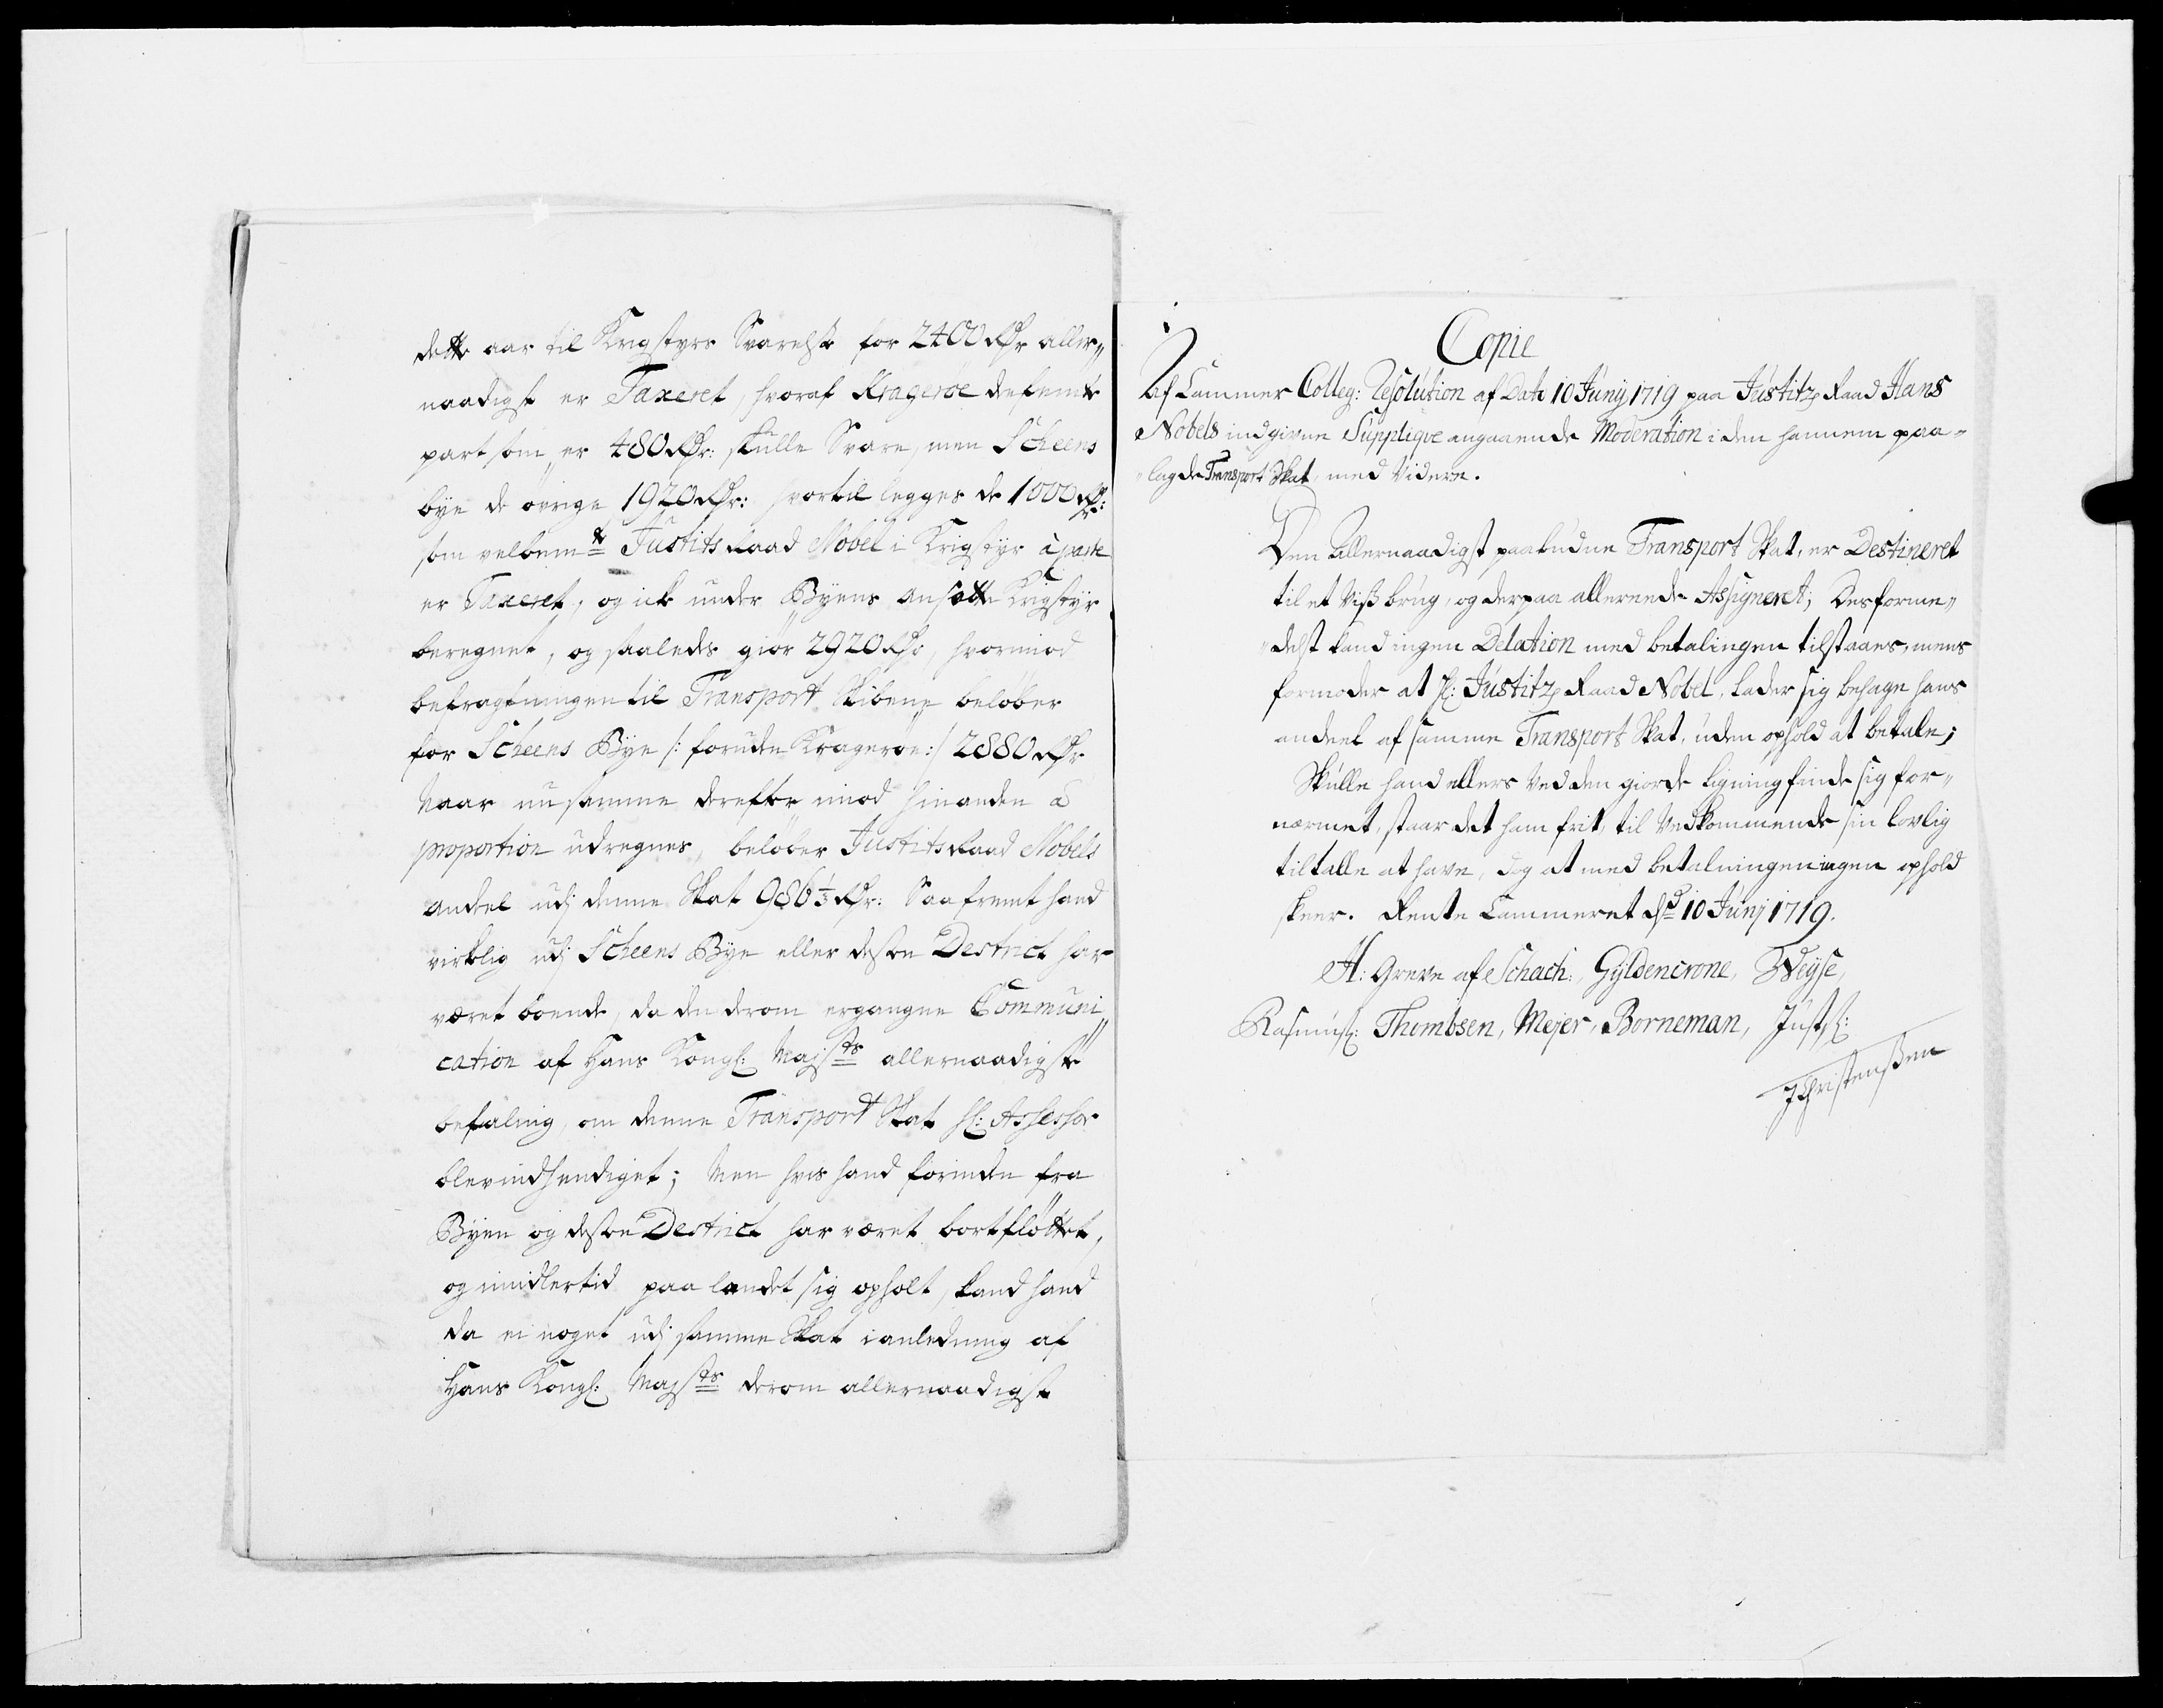 dette aar til Krigstyrs Svarelse for 2400 Rdr aller„
naadigst er Taxeret, hvoraf Krageröe defemte
part som er 480 Rdr: skulle Svare, men Scheens
bye de övrige 1920 Rdr: hvortil legges de 1000 Rdr:
som velbemte Justits Raad Nobel i Krigstyr à parte
er Taxeret, og ick under Byens Ansatte Krigstyr
beregnet, og saaledes giör 2920 Rdr, hvorimod
befragtningen til Transport Skibene belöber
for Scheens Bye /: foruden Krageröe :/ 2880 Rdr
Naar nu samme derefter imod hinanden à
proportion udregnes, belöber Justits Raad Nobels
Andeel udj denne Skat 986⅓ Rdr: Saafremt hand
virkelig udj Scheens Bye eller dessen District har
veret boende, da den derom ergangne Communi„
cation af Hans Kongl: Majsts allernaadigste
befaling, om denne Transport Skat Hl: Assessor
blev indhendiget; Men hvis hand forinden fra
Byen og dessen District har veret bortflöttet,
og imidlertid paa landet sig opholt, kand hand
da ei noget udj samme Skat i anledning af
Hans Kongl: Majsts derom allernaadigste
Copie
Af Cammer Colleg: Resolution af Dato 10 Junij 1719 paa Justitz Raad Hans
Nobels indgivne Supplique angaaende Moderation i den hannem paa„
„lagde Transport Skat, med Videre.
Den Allernaadigst paabudne Transport Skat, er Destineret
til et Vist brug, og derpaa allereede Assigneret; Desforme„
„delst kand ingen Delation med betalingen tilstaaes, mens
formoder at Hl: Justitz Raad Nobel, lader sig behage hans
andeel af samme Transport Skat, uden ophold at betale;
Skulle hand ellers Ved den giorde Ligning finde sig for„
nærmet, staar det ham frit, til Vedkommende sin lovlig
tiltalle at have, dog at med betalningen ingen ophold
skeer. Rente Cammeret dend 10 Junj 1719.
A: Greve af Schach: Gyldencrone, Weyse,
Rasmusl: Thombsen, Mejer, Borneman, Justsl:
JChristensßen